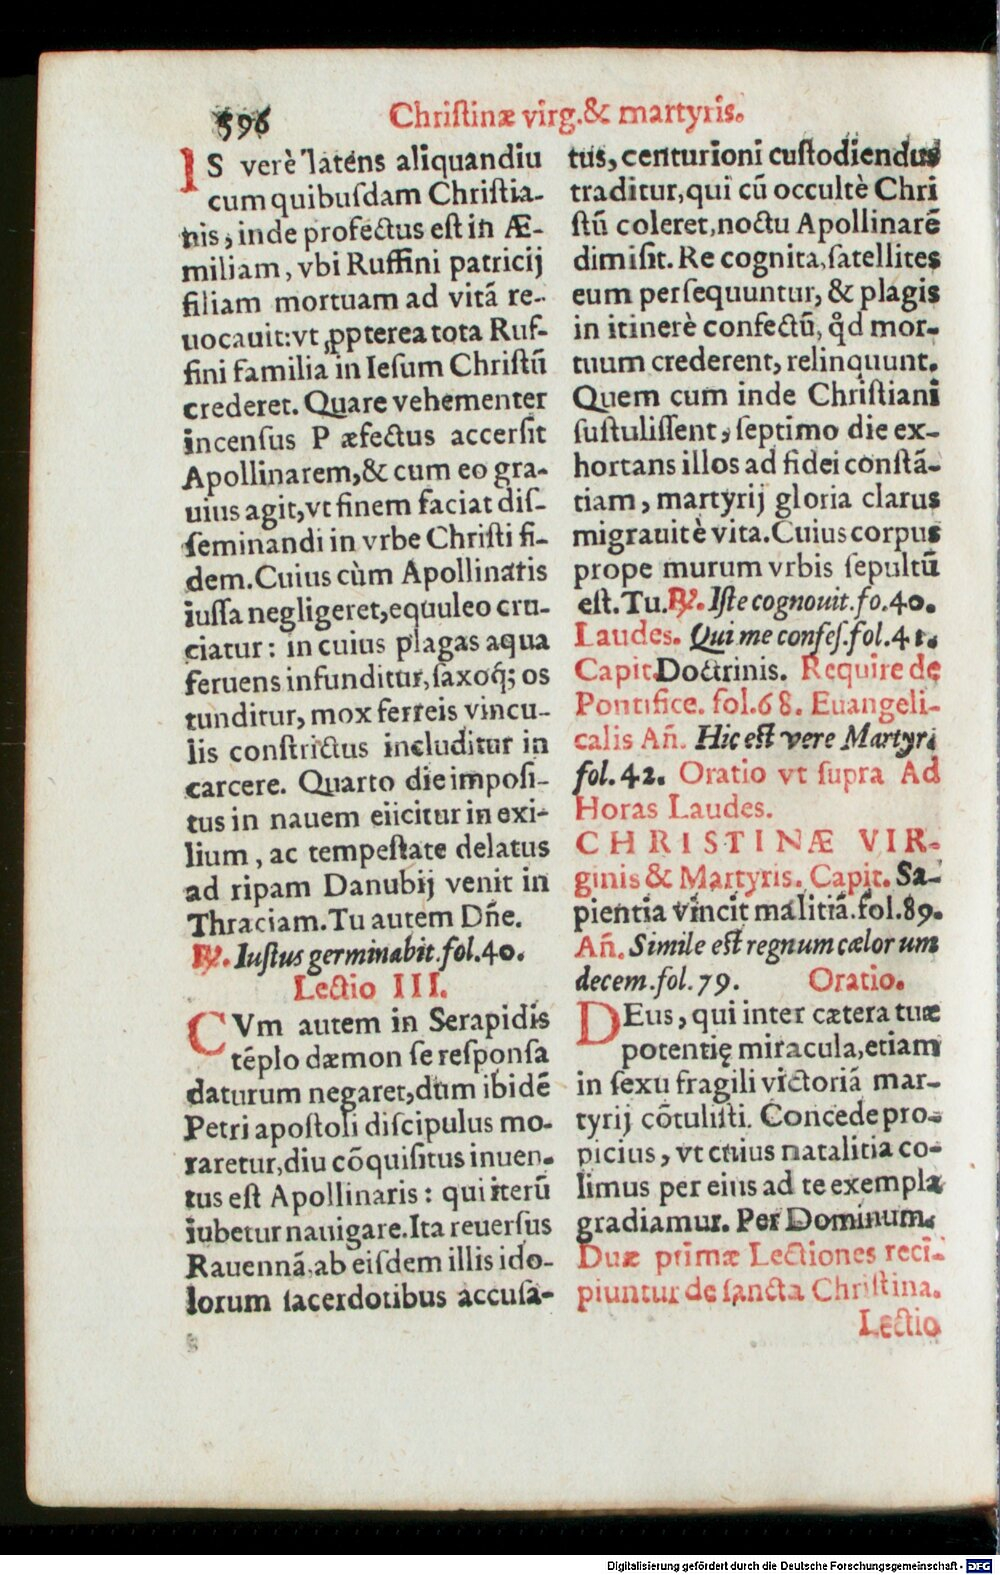 596
Christinæ virg.& martyris.
IS verè latens aliquandiu
cum quibuſdam Chriſtia-
nis, inde profectus eſt in Æ-
miliam, vbi Ruffini patricij
filiam mortuam ad vitã re-
uocauit: vt ꝓpterea tota Ruf-
fini familia in Ieſum Chriſtũ
crederet. Quare vehementer
incenſus P æfectus accerſit
Apollinarem, & cum eo gra-
uius agit, vt finem faciat diſ-
ſeminandi in vrbe Chriſti fi-
dem. Cuius cùm Apollinaris
iuſſa negligeret, equuleo cru-
ciatur: in cuius plagas aqua
feruens infunditur, ſaxoq́; os
tunditur, mox ferreis vincu-
lis conſtrictus includitur in
carcere. Quarto die impoſi-
tus in nauem eiicitur in exi-
lium, ac tempeſtate delatus
ad ripam Danubij venit in
Thraciam. Tu autem Dñe.
℟. Iuſtus germinabit. fol. 40.
Lectio III.
CVm autem in Serapidis
tẽplo dæmon ſe reſponſa
daturum negaret, dum ibidẽ
Petri apoſtoli diſcipulus mo-
raretur, diu cõquiſitus inuen-
tus eſt Apollinaris: qui iterũ
iubetur nauigare. Ita reuerſus
Rauennã, ab eiſdem illis ido-
lorum ſacerdotibus accuſa-
tus, centurioni cuſtodiendus
traditur, qui cũ occultè Chri
ſtũ coleret, noctu Apollinarẽ
dimiſit. Re cognita, ſatellites
eum perſequuntur, & plagis
in itinerè confectũ, qͦd mor-
tuum crederent, relinquunt.
Quem cum inde Chriſtiani
ſuſtuliſſent, ſeptimo die ex-
hortans illos ad fidei conſtã-
tiam, martyrij gloria clarus
migrauit è vita. Cuius corpus
prope murum vrbis ſepultũ
eſt. Tu. ℟. Iſte cognouit. fo. 40.
Laudes. Qui me confeſ. fol. 41.
Capit. Doctrinis. Require de
Pontifice. fol. 68. Euangeli-
calis Añ. Hic eſt vere Martyr.
fol. 42. Oratio vt ſupra Ad
Horas Laudes.
CHRISTINÆ VIR-
ginis & Martyris. Capit. Sa-
pientia vincit malitiã. fol. 89.
Añ. Simile eſt regnum cælorum
decem. fol. 79. Oratio.
DEus, qui inter cætera tuæ
potentię miracula, etiam
in ſexu fragili victoriã mar-
tyrij cõtuliſti. Concede pro-
picius, vt cuius natalitia co-
limus per eius ad te exempla
gradiamur. Per Dominum.
Duæ primæ Lectiones reci-
piuntur de ſancta Chriſtina.
Lectio
Digitalisierung gefördert durch die Deutsche Forschungsgemeinschaft - DFG